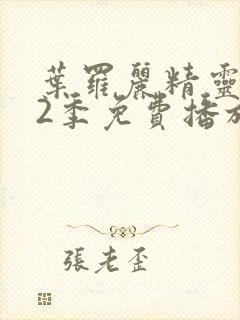 葉羅麗精靈
2季免費播放
張老歪